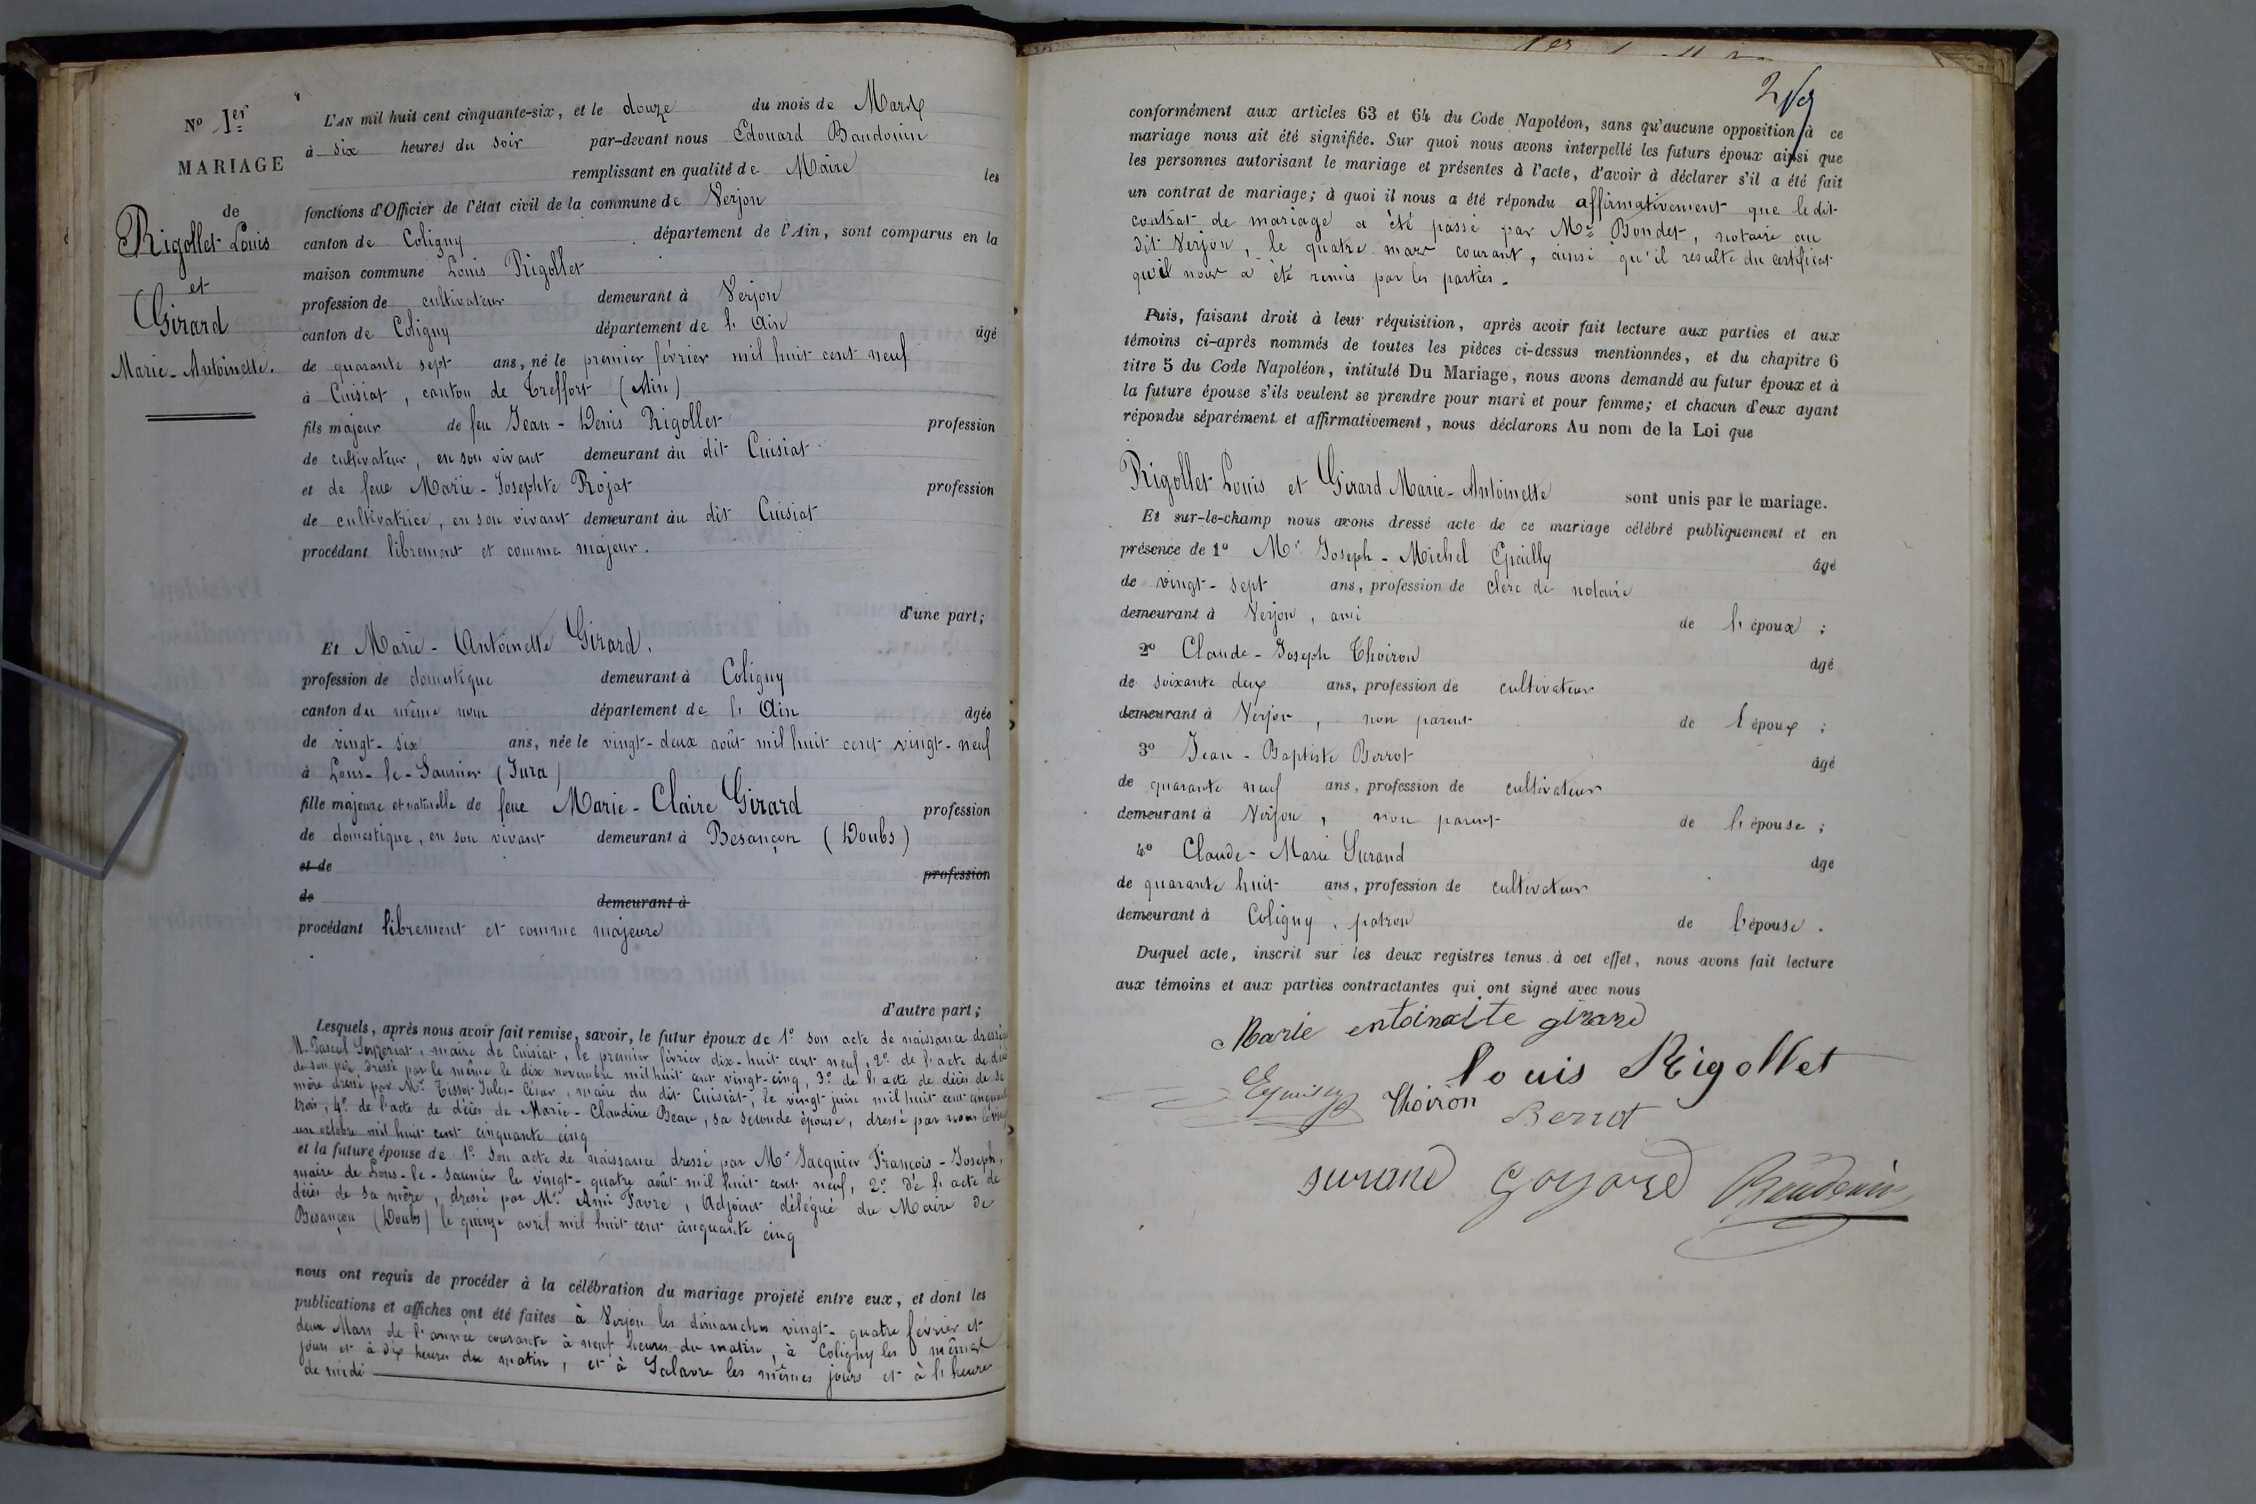 N° 1er
MARIAGE
de
Rigollet Louis
et
Girard
Marie-Antoinette.
L'AN mil huit cent cinquante-six, et le douze du mois de Mars
à six heures du soir par-devant nous Edouard Baudouin
remplissant en qualité de Maire les
fonctions d'Officier de l'état civil de la commune de Verjon
canton de Coligny département de l'Ain, sont comparus en la
maison commune Louis Rigollet
profession de cultivateur demeurant à Verjon
canton de Coligny département de l'Ain âgé
de quarante sept ans, né le premier février mil huit cent neuf
à Cuisiat, canton de Treffort (Ain)
fils majeur de feu Jean-Denis Rigollet profession
de cultivateur, en son vivant demeurant àu dit Cuisiat
et de feue Marie-Josephte Rojat profession
de cultivatrice, en son vivant demeurant àu dit Cuisiat
procédant librement et comme majeur.
d'une part;
Et Marie-Antoinette Girard.
profession de domestique demeurant à Coligny
canton du même nom département de l'Ain âgée
de vingt-six ans, née le vingt-deux août mil huit cent vingt-neuf
à Lons-le-Saunier (Jura)
fille majeure et naturelle de feue Marie-Claire Girard profession
de domestique, en son vivant demeurant à Besançon (Doubs)
et de profession
de demeurant à
procédant librement et comme majeure
d'autre part;
Lesquels, après nous avoir fait remise, savoir, le futur époux de 1° son acte de naissance dressé
M. Pascal, maire de Cuisiat, le premier février dix-huit cent neuf, 2° de l'acte de
de son père dressé par le même le dix novembre mil huit cent vingt-cinq, 3° de l'acte de décès de sa
mère dressé par Mr Tissot Jules-César, maire du dit Cuisiat, le vingt juin mil huit cent
trois, 4° de l'acte de décès de Marie-Claudine Beau, sa seconde épouse, dressé par nous le
un octobre mil huit cent cinquante cinq
et la future épouse de 1° son acte de naissance dressé par Mr Jacquier François-Joseph,
maire de Lons-le-Saunier le vingt-quatre août mil huit cent neuf, 2° de l'acte de
décès de sa mère, dressé par Mr Ami Favre, Adjoint délégué du Maire de
Besançon (Doubs) le quinze avril mil huit cent cinquante cinq
nous ont requis de procéder à la célébration du mariage projeté entre eux, et dont les
publications et affiches ont été faites à Verjon les dimanches vingt-quatre février et
deux Mars de l'année courante à neuf heures du matin, à Coligny les mêmes
jours et à dix heures du matin, et à Salavre les mêmes jours et à l'heure
de midi
conformément aux articles 63 et 64 du Code Napoléon, sans qu'aucune opposition à ce
mariage nous ait été signifiée. Sur quoi nous avons interpellé les futurs époux ainsi que
les personnes autorisant le mariage et présentes à l'acte, d'avoir à déclarer s'il a été fait
un contrat de mariage; à quoi il nous a été répondu affirmativement que le dit
contrat de mariage a été passé par Me Bondet, notaire au
dit Verjon, le quatre mars courant, ainsi qu'il resulte du certificat
qu'il nous a été remis par les parties.
Puis, faisant droit à leur réquisition, après avoir fait lecture aux parties et aux
témoins ci-après nommés de toutes les pièces ci-dessus mentionnées, et du chapitre 6
titre 5 du Code Napoléon, intitulé Du Mariage, nous avons demandé au futur époux et à
la future épouse s'ils veulent se prendre pour mari et pour femme; et chacun d'eux ayant
répondu séparément et affirmativement, nous déclarons Au nom de la Loi que
Rigollet Louis et Girard Marie-Antoinette sont unis par le mariage.
Et sur-le-champ nous avons dressé acte de ce mariage célébré publiquement et en
présence de 1° Mr Joseph-Michel Epailly âgé
de vingt-sept ans, profession de clerc de notaire
demeurant à Verjon, ami de l'époux;
2° Claude-Joseph Thoiron âgé
de soixante deux ans, profession de cultivateur
demeurant à Verjon, non parent de l'époux;
3° Jean-Baptiste Berrot âgé
de quarante neuf ans, profession de cultivateur
demeurant à Verjon, non parent de l'épouse;
4° Claude-Marie Surand âgé
de quarante huit ans, profession de cultivateur
demeurant à Coligny, patron de l'épouse.
Duquel acte, inscrit sur les deux registres tenus à cet effet, nous avons fait lecture
aux témoins et aux parties contractantes qui ont signé avec nous
Marie entoinaite girard
louis Rigollet
Thoiron Berrot
surand goyard Baudouin